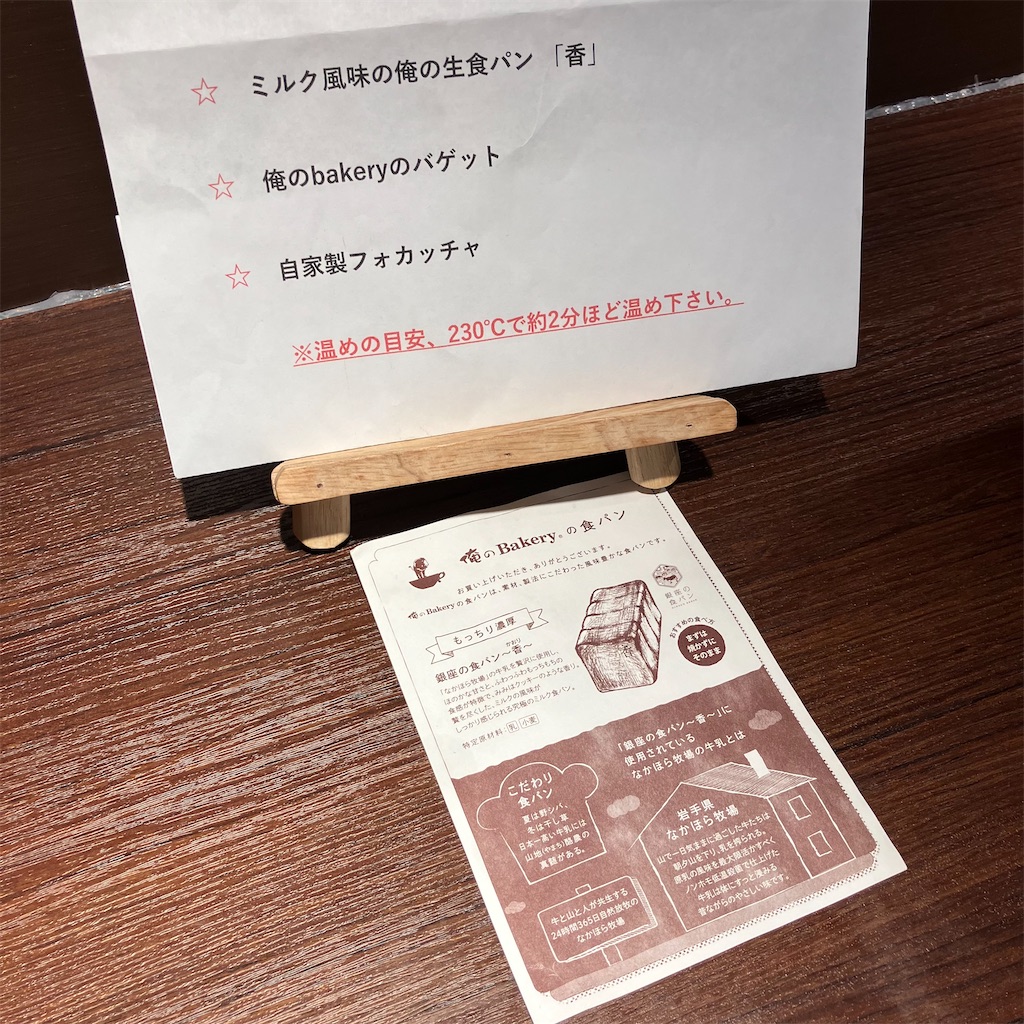 ☆ ミルク風味の俺の生食パン 「香」
☆ 俺のbakeryのバゲット
☆ 自家製フォカッチャ
※温めの目安、230℃で約2分ほど温め下さい。
俺のBakery®の食パン
お買い上げいただき、ありがとうございます。
俺のBakeryの食パンは、素材、製法にこだわった風味豊かな食パンです。
もっちり濃厚
かおり
銀座の食パン〜香〜
「なかほら牧場」の牛乳を贅沢に使用し、
ほのかな甘さと、ふわっふわもっちもちの
食感が特徴で、みみはクッキーのような香り。
贅を尽くした、ミルクの風味が
しっかり感じられる究極のミルク食パン。
特定原材料：乳 小麦
銀座の
食パン
おすすめの食べ方
まずは
焼かずに
そのまま
「銀座の食パン〜香〜」に
使用されている
なかほら牧場の牛乳とは
こだわり
食パン
夏は野シバ、
冬は干し草
日本一高い牛乳には
山地(やまち)酪農の
真髄がある。
岩手県
なかほら牧場
山で一日気ままに過ごした牛たちは
朝夕山を下り、乳を搾られる。
原乳の風味を最大限活かすべく
ノンホモ低温殺菌で仕上げた
牛乳は体にすっと滲みる
昔ながらのやさしい味です。
牛と山と人が共生する
24時間365日自然放牧の
なかほら牧場